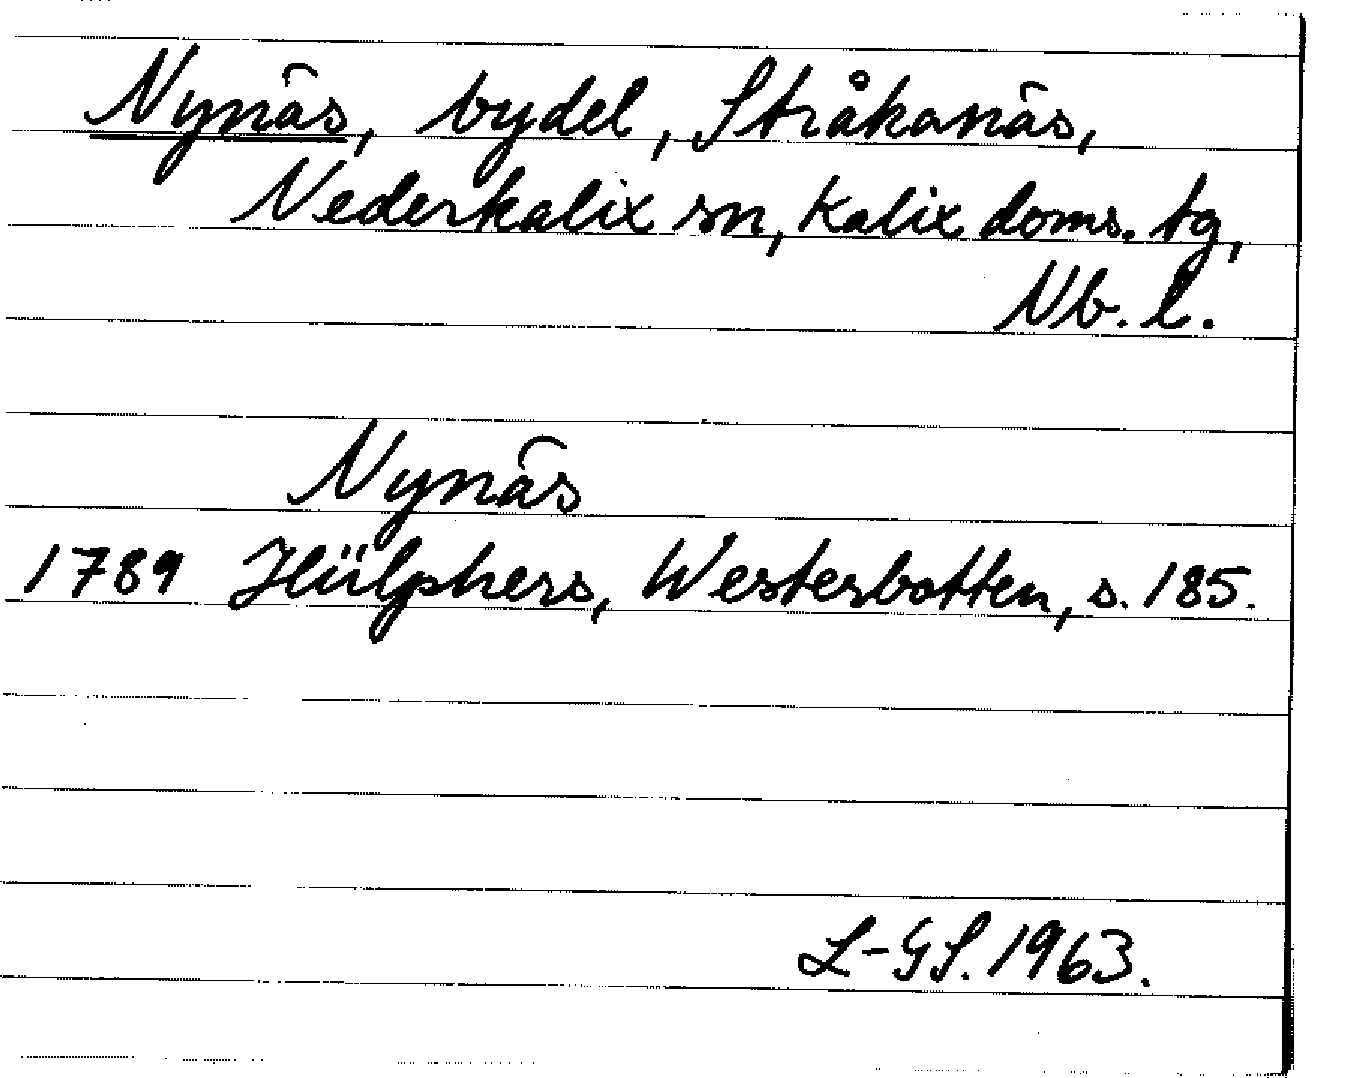 Nynäs, bydel, Stråkanäs,
Nederkalix sn, Kalix doms. tg,
Nb. l.
Nynäs
1789 Hülphers, Westerbotten, s. 185.
L-GS. 1963.